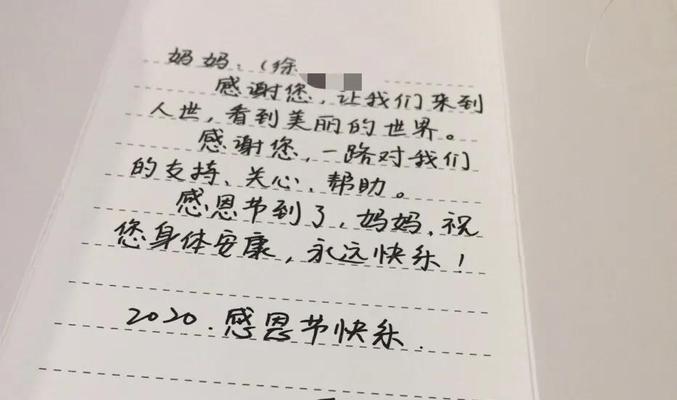 妈妈：（徐
感谢您，让我们来到
人世，看到美丽的世界。
感谢您，一路对我们
的支持、关心、帮助。
感恩节到了，妈妈，祝
您身体安康，永远快乐！
2020.感恩节快乐.